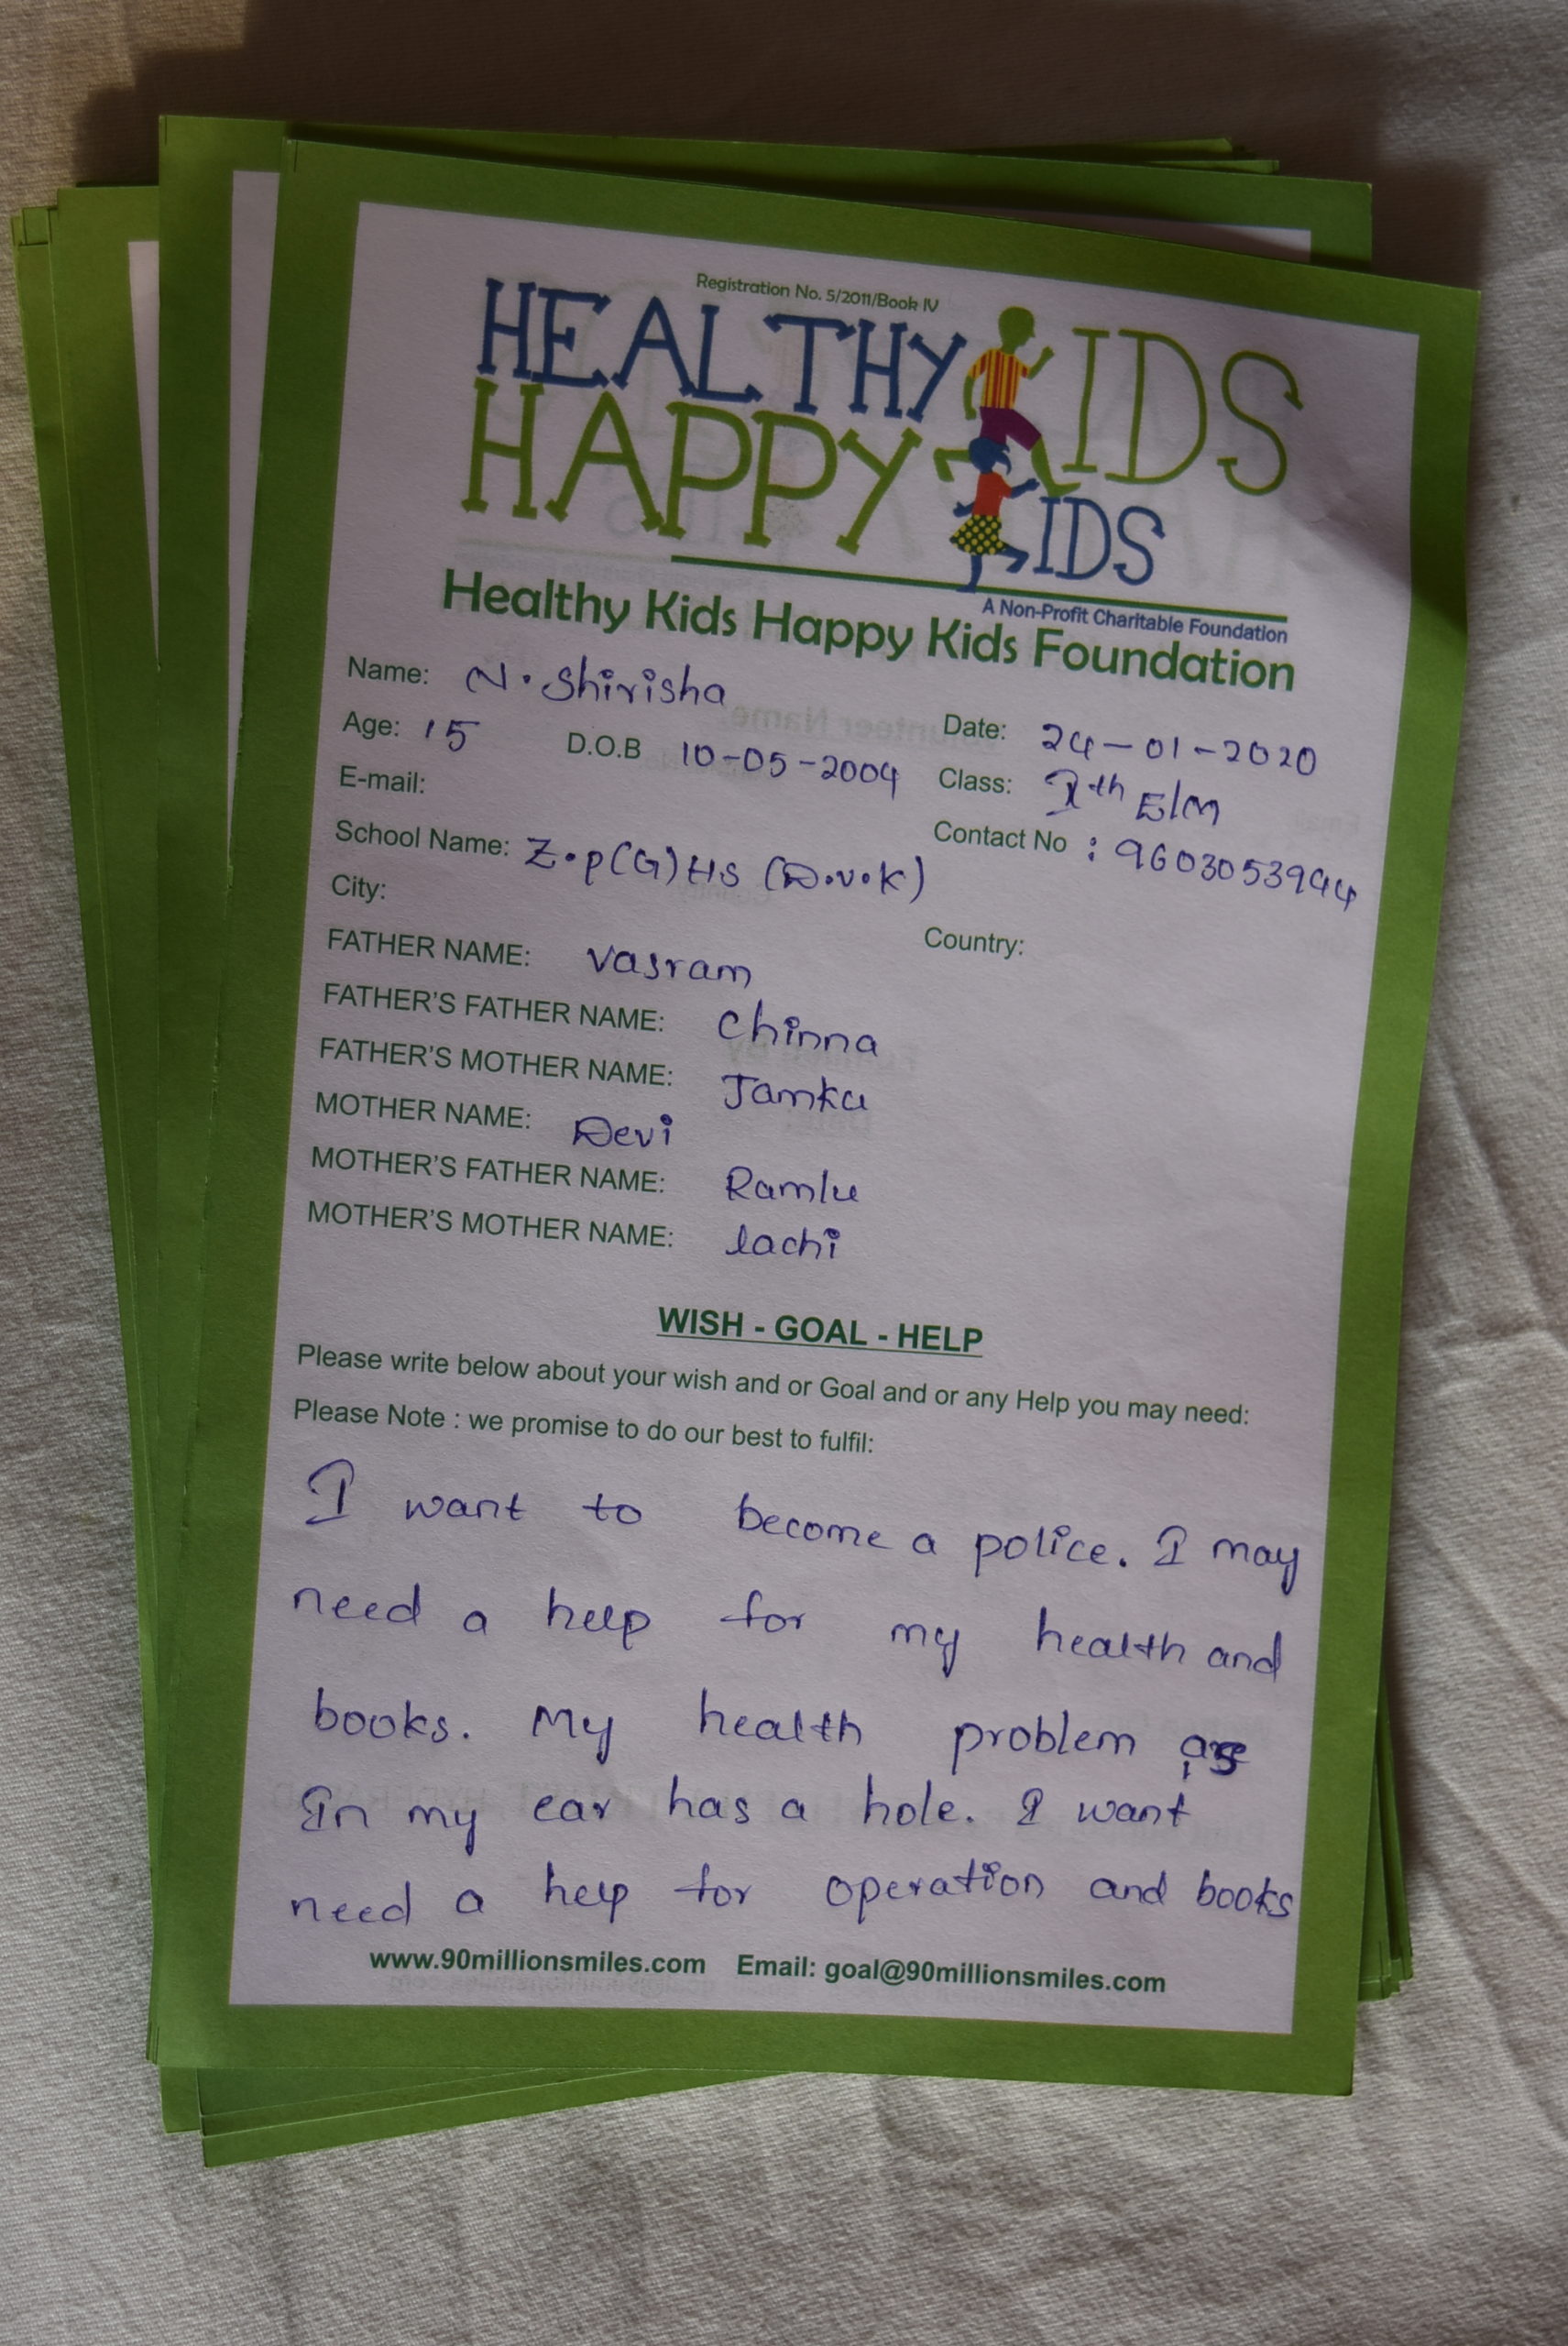 Registration No. 5/2011/Book IV
HEALTHY KIDS
HAPPY KIDS
A Non-Profit Charitable Foundation
Healthy Kids Happy Kids Foundation
Name: N. Shirisha
Date: 24-01-2020
Age: 15 D.O.B 10-05-2004
Class: Xth E/M
E-mail:
Contact No : 9603053944
School Name: Z.p(G)HS (D.v.K)
City:
Country:
FATHER NAME: Vasram
FATHER'S FATHER NAME: Chinna
FATHER'S MOTHER NAME: Jamku
MOTHER NAME: Devi
MOTHER'S FATHER NAME: Ramlu
MOTHER'S MOTHER NAME: lachi
WISH - GOAL - HELP
Please write below about your wish and or Goal and or any Help you may need:
Please Note : we promise to do our best to fulfil:
I want to become a police. I may
need a help for my health and
books. My health problem is
In my ear has a hole. I want
need a help for operation and books
www.90millionsmiles.com Email: goal@90millionsmiles.com